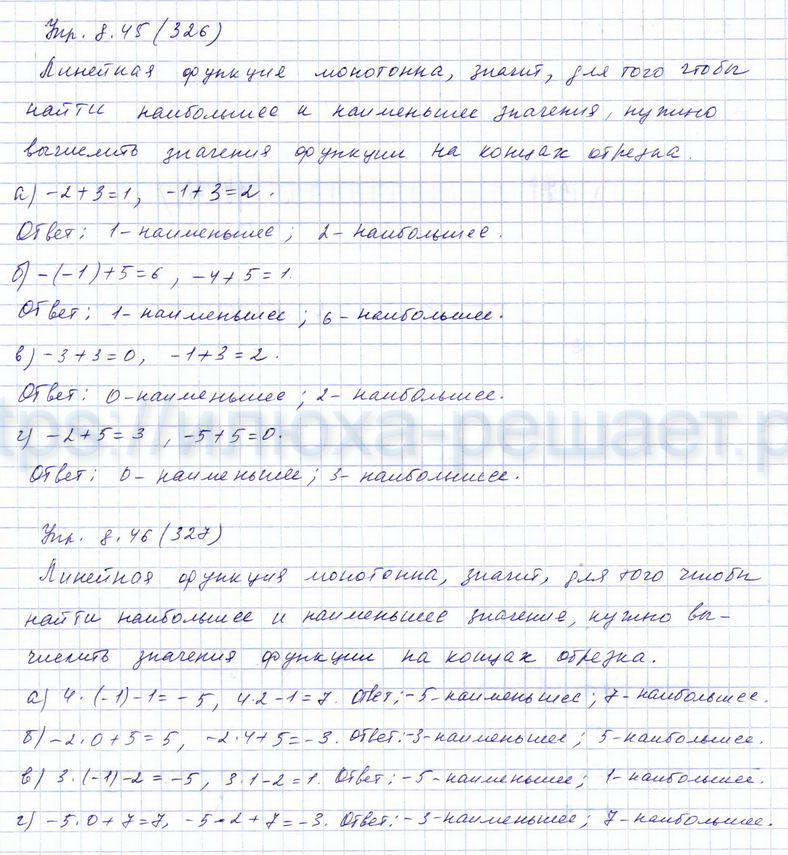 Упр. 8.45 (326)
Линейная функция монотонна, значит, для того чтобы
найти наибольшее и наименьшее значения, нужно
вычислить значения функции на концах отрезка.
а) -2+3=1, -1+3=2.
Ответ: 1- наименьшее; 2- наибольшее.
б) -(-1)+5=6, -4+5=1.
Ответ: 1- наименьшее; 6- наибольшее.
в) -3+3=0, -1+3=2.
Ответ: 0-наименьшее; 2- наибольшее.
tps://илюха-решает.р
г) -2+5=3, -5+5=0.
Ответ: 0- наименьшее; 3- наибольшее.
Упр. 8.46 (327)
Линейная функция монотонна, значит, для того чтобы
найти наибольшее и наименьшее значение, нужно вы-
числить значения функции на концах отрезка.
а) 4·(-1)-1=-5, 4·2-1=7. Ответ: -5-наименьшее; 7-наибольшее.
б) -2·0+5=5, -2·4+5=-3. Ответ: -3-наименьшее; 5-наибольшее.
в) 3·(-1)-2=-5, 3·1-2=1. Ответ: -5-наименьшее; 1-наибольшее.
г) -5·0+7=7, -5·2+7=-3. Ответ: -3-наименьшее; 7-наибольшее.